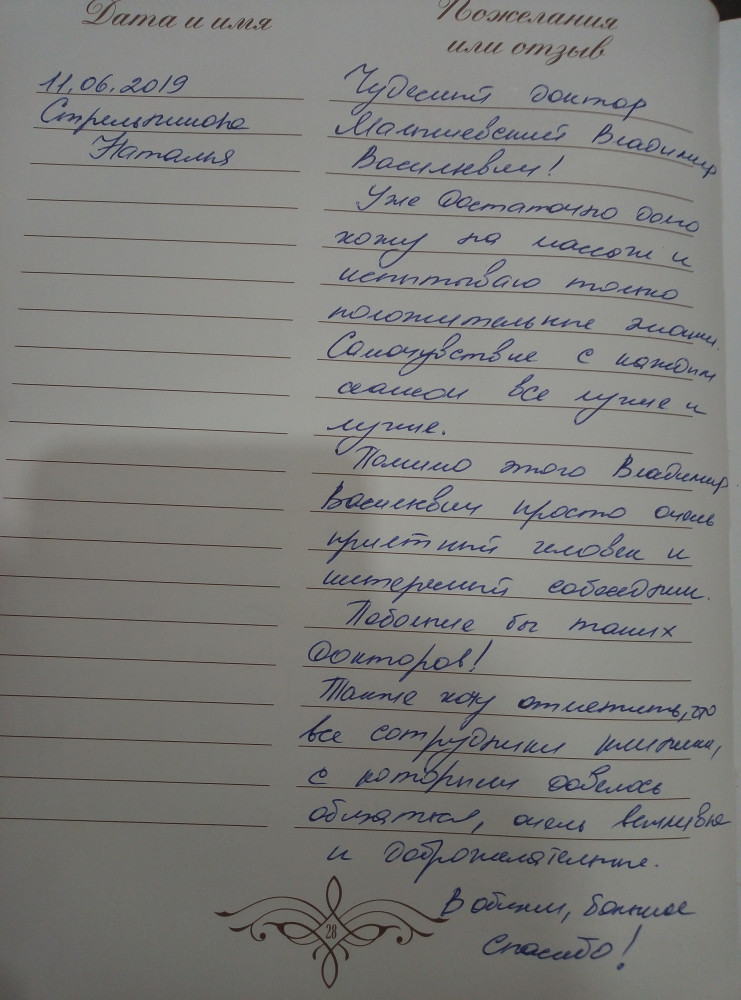 Дата и имя
Пожелания
или отзыв
11.06.2019
Стрельникова
Наталья
Чудесный доктор
Малышевский Владимир
Васильевич!
Уже достаточно долго
хожу на массаж и
испытываю только
положительные эмоции.
Самочувствие с каждым
сеансом все лучше и
лучше.
Помимо этого Владимир
Васильевич просто очень
приятный человек и
интересный собеседник.
Побольше бы таких
докторов!
Также хочу отметить, что
все сотрудники клиники,
с которыми довелось
общаться, очень вежливые
и доброжелательные.
В общем, большое
спасибо!
28